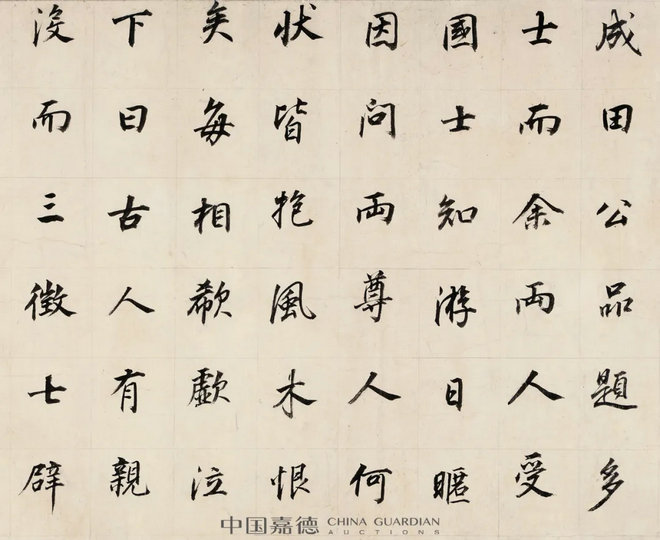 成田公品題多
士而余兩人受
國士知游日暱
因问兩尊人何
狀皆抱風木恨
矣每相欷歔泣
下曰古人有親
沒而三徵七辟
中国嘉德 CHINA GUARDIAN
AUCTIONS